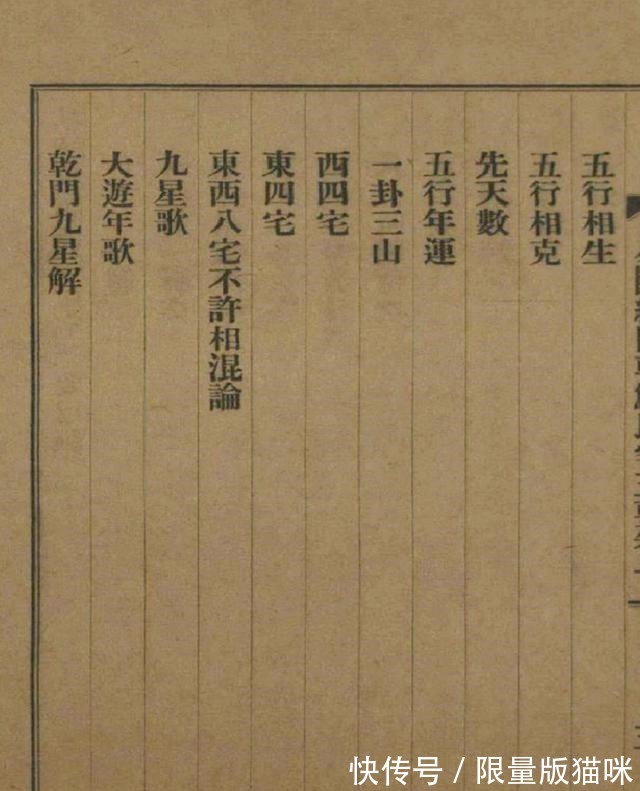 五行相生
五行相克
先天數
五行年運
一卦三山
西四宅
東四宅
東西八宅不許相混論
九星歌
大遊年歌
乾門九星解
快传号/限量版猫咪